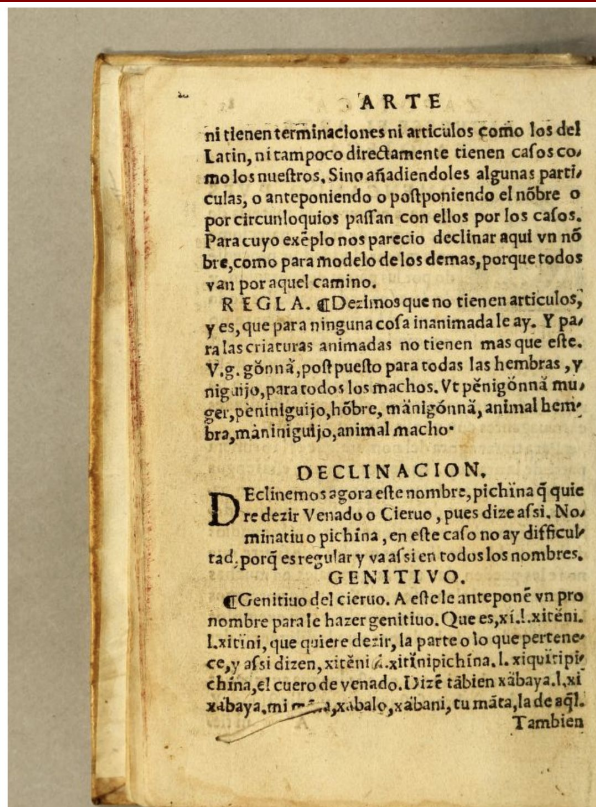 ARTE
ni tienen terminaciones ni articulos como los del
Latin, ni tampoco directamente tienen casos co-
mo los nuestros, Sino añadiendoles algunas parti-
culas, o anteponiendo o postponiendo el nõbre o
por circunloquios passan con ellos por los casos.
Para cuyo exẽplo nos parecio declinar aqui vn nõ
bre, como para modelo de los demas, porque todos
van por aquel camino.
REGLA. ⸿Dezimos que no tienen articulos,
y es, que para ninguna cosa inanimada le ay. Y pa-
ra las criaturas animadas no tienen mas que este.
V.g. gŏnnä, postpuesto para todas las hembras, y
niguijo, para todos los machos. Vt pĕnigónnä mu-
ger, peniniguijo, hõbre, mänigónnä, animal hem-
bra, mäniniguijo, animal macho.
DECLINACION.
DEclinemos agora este nombre, pichïna q̃ quie
re dezir Venado o Cieruo, pues dize assi. No-
minatiuo pichína, en este caso no ay difficul-
tad, porq̃ es regular y va assi en todos los nombres.
GENITIVO.
⸿Genitiuo del cieruo. A este le anteponẽ vn pro
nombre para le hazer genitiuo. Que es, xí.l.xitĕni.
l.xitïni, que quiere dezir, la parte o lo que pertene-
ce, y assi dizen, xitĕni .l. xitïnipichína. l. xiquitipi-
chína, el cuero de venado. Dizẽ tãbien xäbaya.l.xi
xäbaya, mi xäbalo, xäbani, tu mãta, la de aq̃l.
Tambien